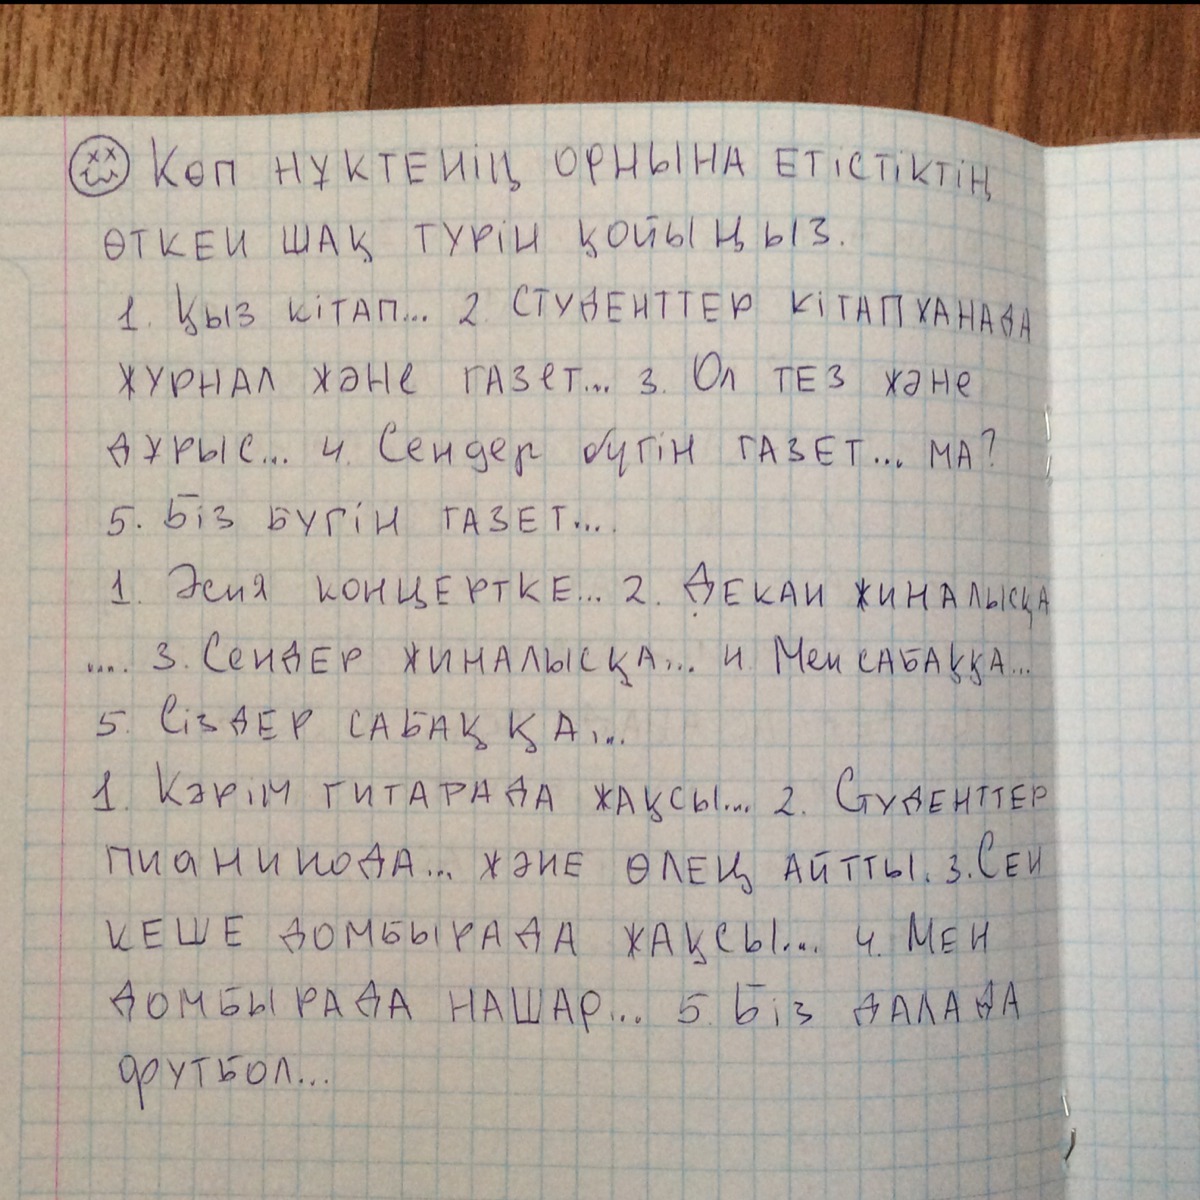 Көп нүктенің орнына етістіктің
өткен шақ түрін қойыңыз.
1. Қыз кітап... 2. Студенттер кітапханада
журнал және газет... 3. Ол тез және
дұрыс... 4. Сендер бүгін газет... ма?
5. Біз бүгін газет....
1. Әсия концертке... 2. Декан жиналысқа
.... 3. Сендер жиналысқа... 4. Мен сабаққа...
5. Сіздер сабаққа...
1. Кәрім гитарада жақсы... 2. Студенттер
пианинода... және өлең айтты. 3. Сен
кеше домбырада жақсы... 4. Мен
домбырада нашар... 5. Біз далада
футбол...